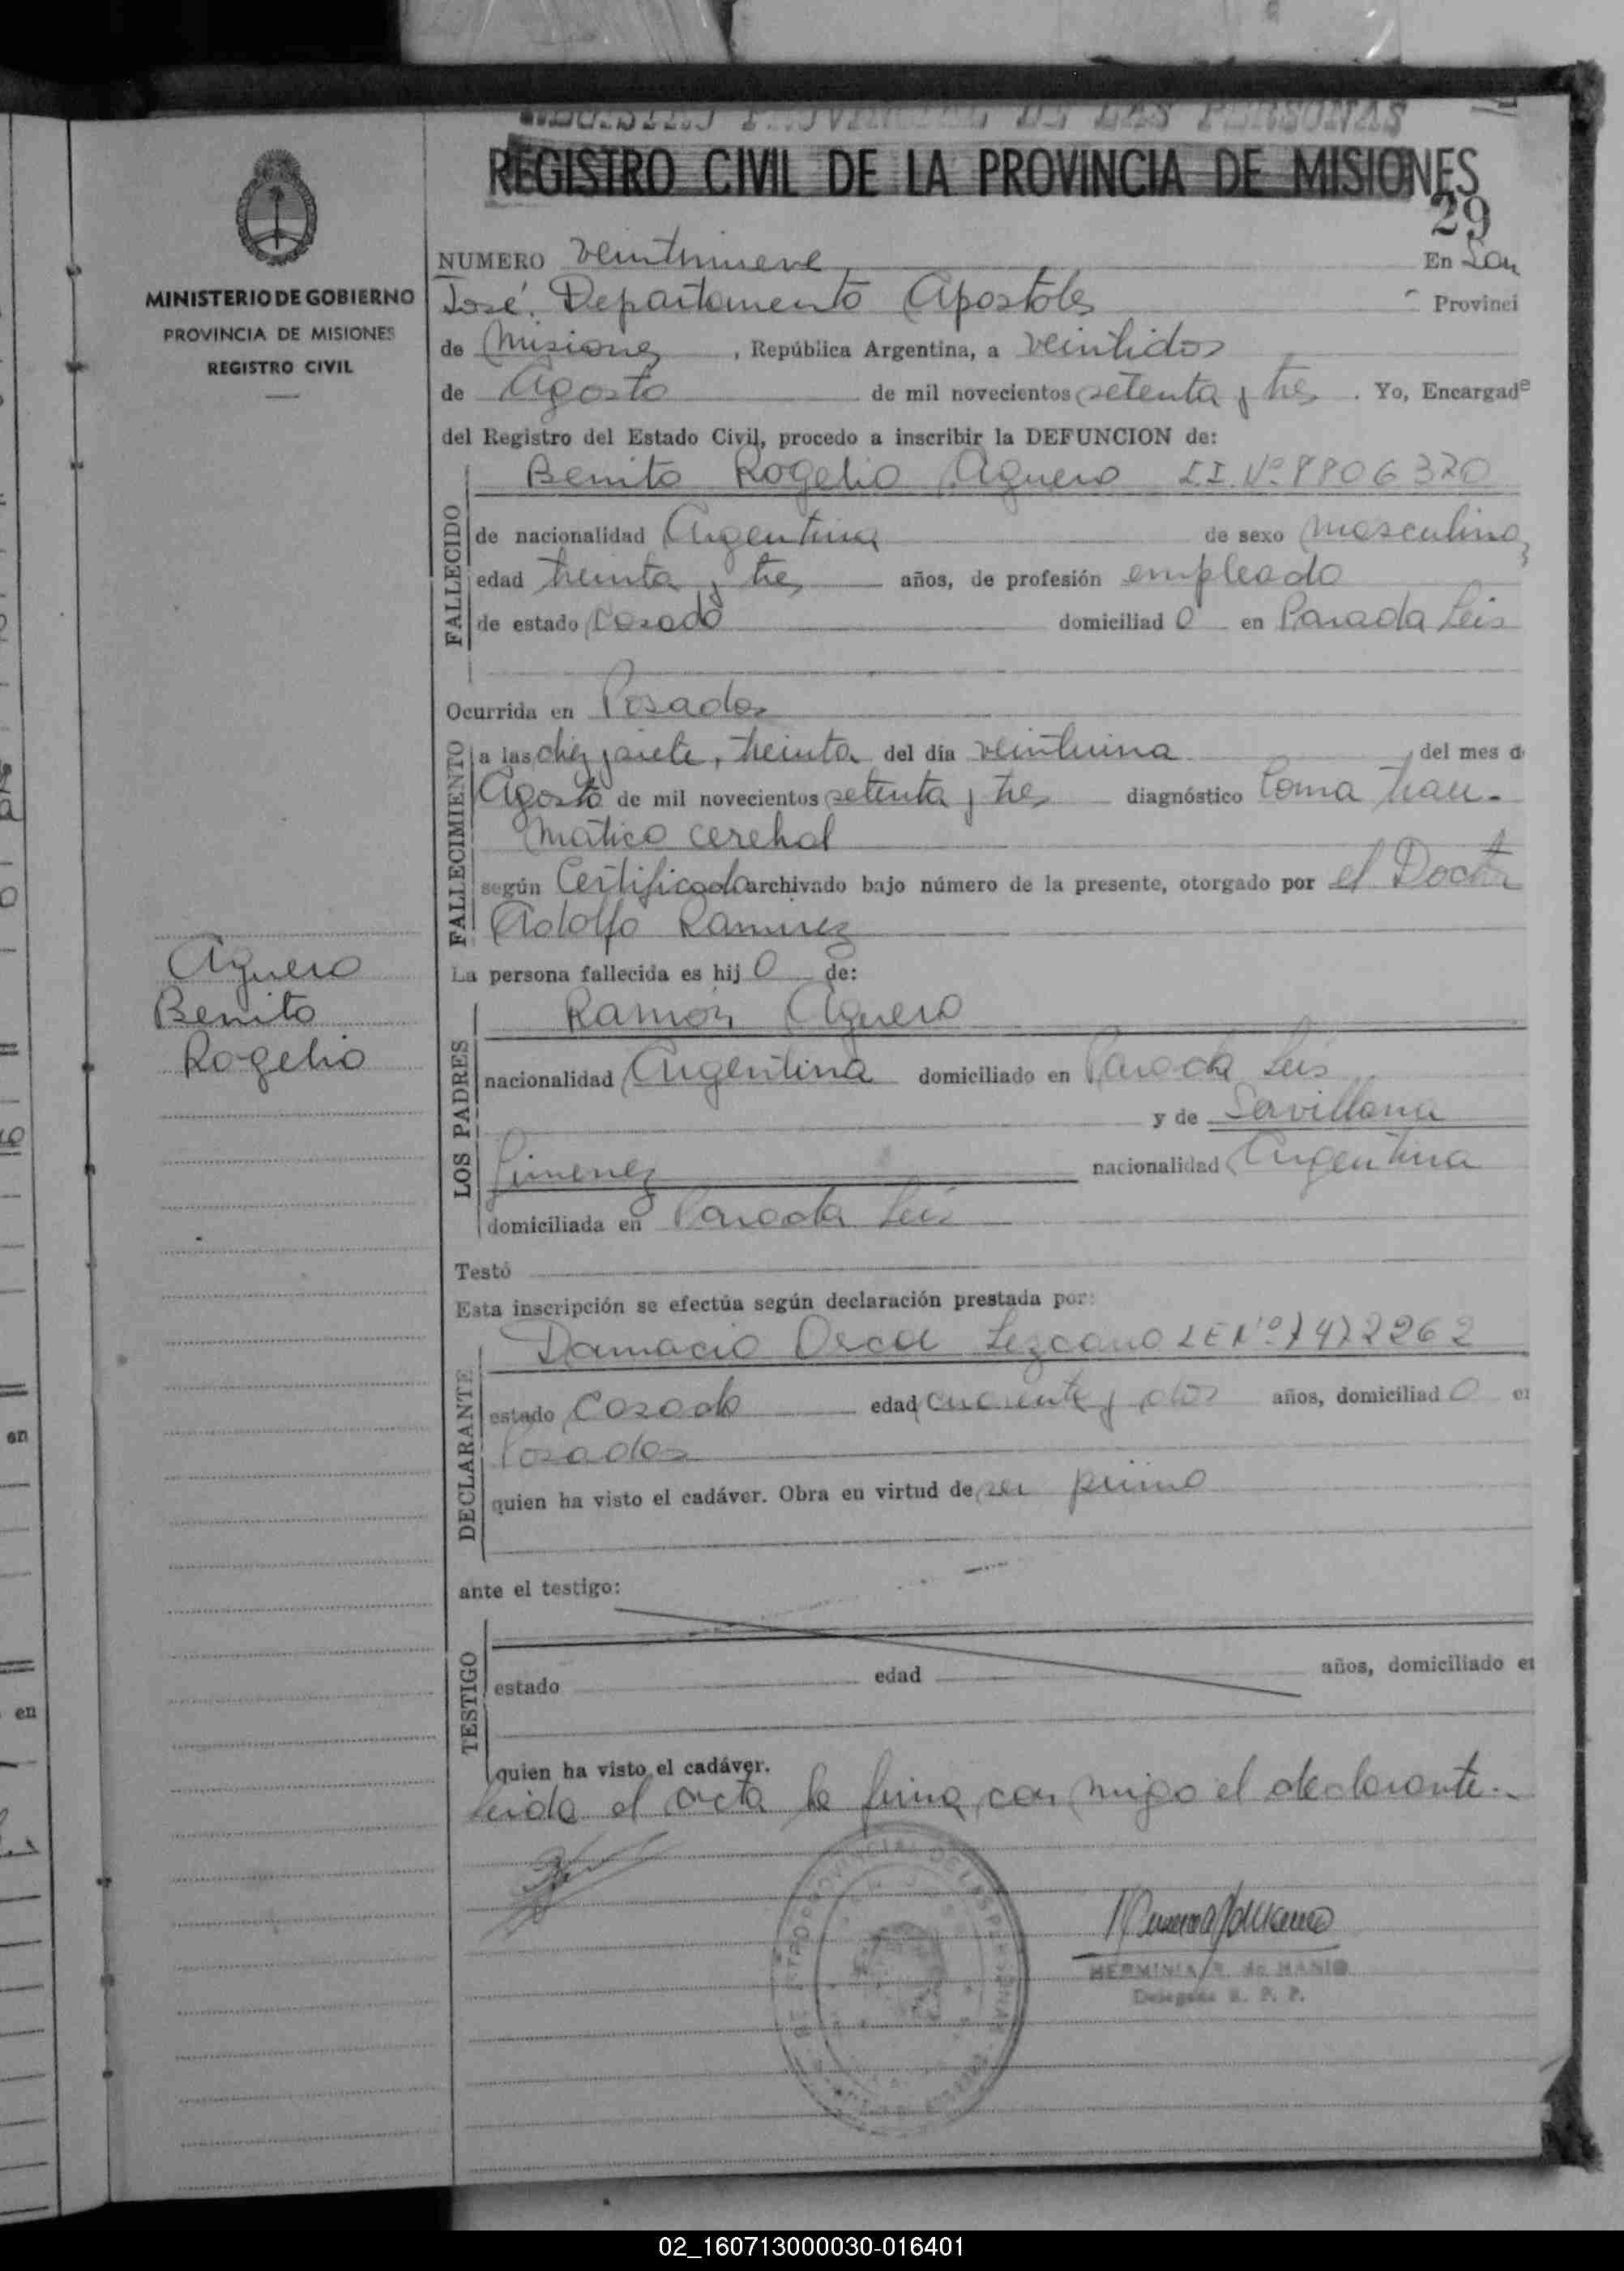 REGISTRO PROVINCIAL DE LAS PERSONAS
REGISTRO CIVIL DE LA PROVINCIA DE MISIONES
29
MINISTERIO DE GOBIERNO
PROVINCIA DE MISIONES
REGISTRO CIVIL
NUMERO veintinueve En San
José. Departamento Apostoles Provinci
de Misiones, República Argentina, a veintidos
de Agosto de mil novecientos setenta y tres. Yo, Encargade
del Registro del Estado Civil, procedo a inscribir la DEFUNCION de:
FALLECIDO
Benito Rogelio Aguero L.I. Nº 8806320
de nacionalidad Argentina de sexo masculino,
edad treinta y tres años, de profesión empleado
de estado casado domiciliad o en Parada Leis
Ocurrida en Posadas
FALLECIMIENTO
a las diez y siete, treinta del día veintiuno del mes d
Agosto de mil novecientos setenta y tres diagnóstico Coma trau-
matico cerebral
según Certificado archivado bajo número de la presente, otorgado por el Doctor
Adolfo Ramirez
Aguero
Benito
Rogelio
La persona fallecida es hij o de:
LOS PADRES
Ramón Aguero
nacionalidad Argentina domiciliado en Parada Leis
y de Servillana
Jimenez nacionalidad Argentina
domiciliada en Parada Leis
Testó
Esta inscripción se efectúa según declaración prestada por:
DECLARANTE
Damacio Oscar Lezcano LE Nº 7472262
estado Casado edad cuarenta y dos años, domiciliad o en
Posadas
quien ha visto el cadáver. Obra en virtud de ser primo
ante el testigo:
TESTIGO
estado edad años, domiciliado en
quien ha visto el cadáver.
Leida el acta la firma con migo el declarante.-
HERMINIA R. de HANIO
Delegada R. P. P.
02_160713000030-016401